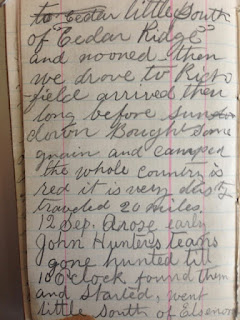 to Cedar little South
of "Cedar Ridge"
and nooned then
we drove to Rich
field arrived then
long before sun
down Bought some
grain and camped
the whole country is
red it is very dusty
traveled 20 miles.
12 Sep. Arose early
John Hunters teams
gone hunted till
10 O'clock found them
and started, went
little South of Elsenor